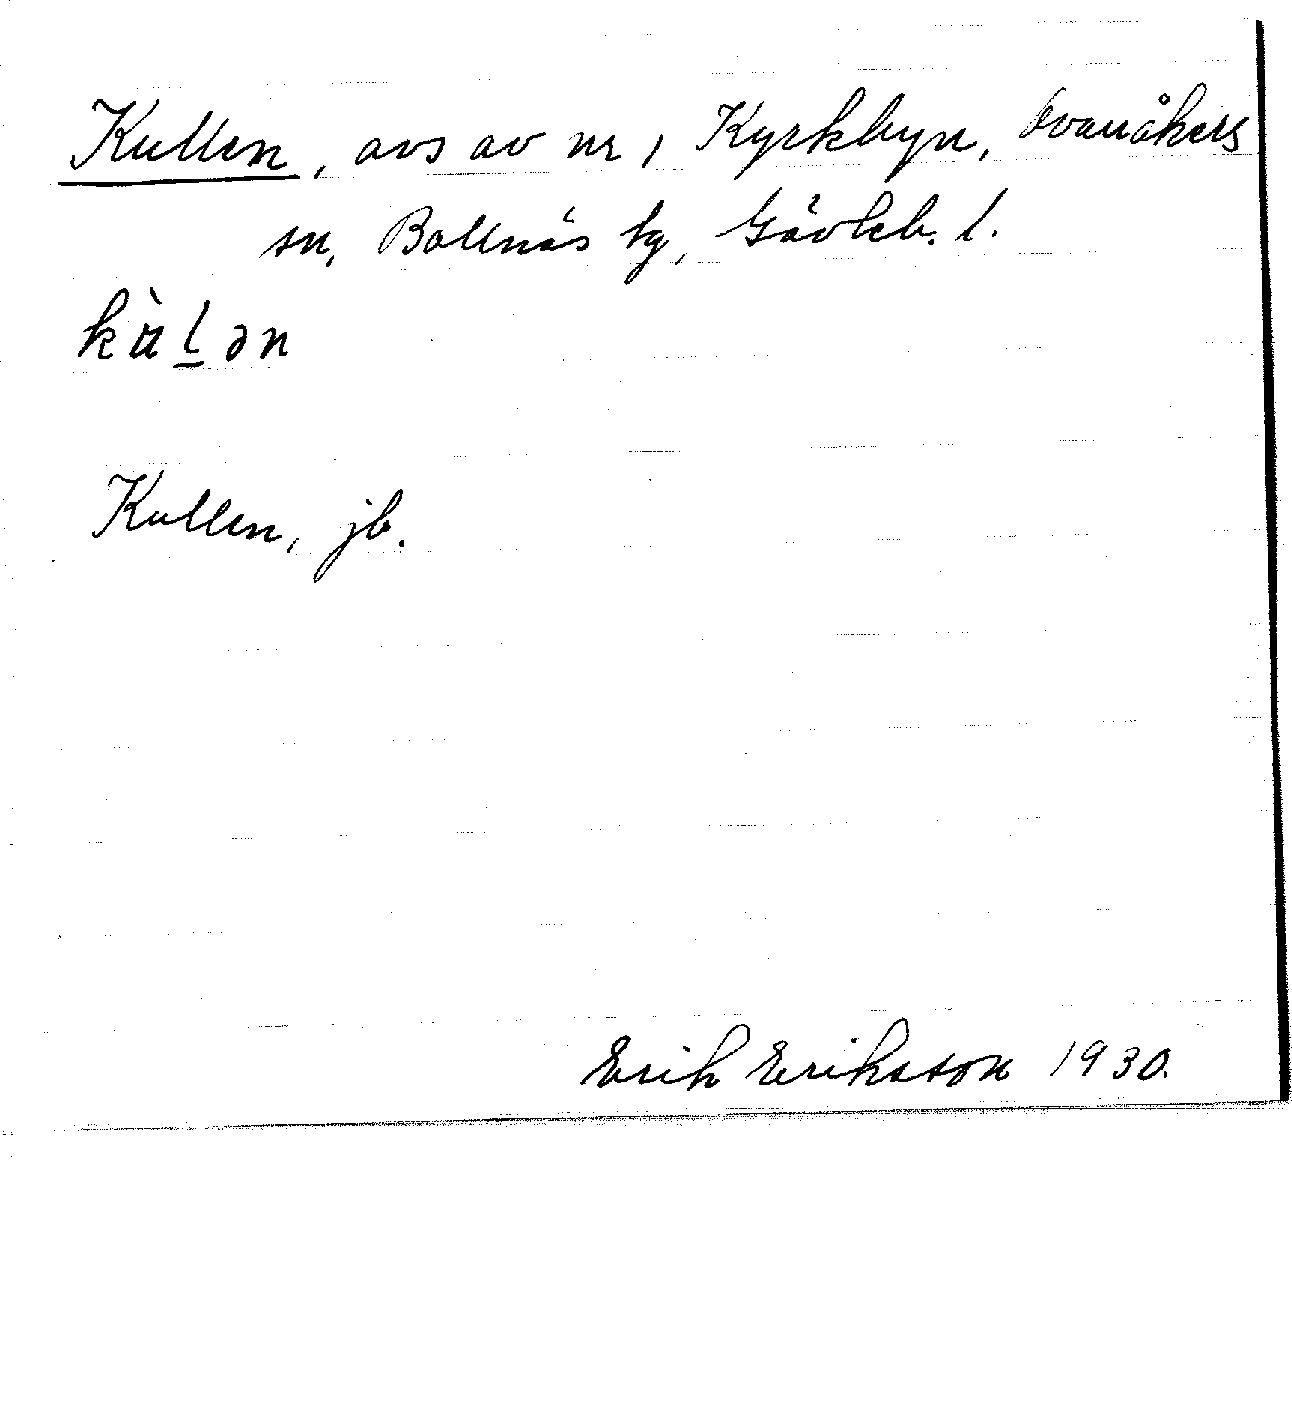 Kullen, avs av nr 1 Kyrkbyn, Ovanåkers
sn, Bollnäs tg, Gävleb. l.
kàl̲ən
Kullen, jb.
Erik Eriksson 1930.